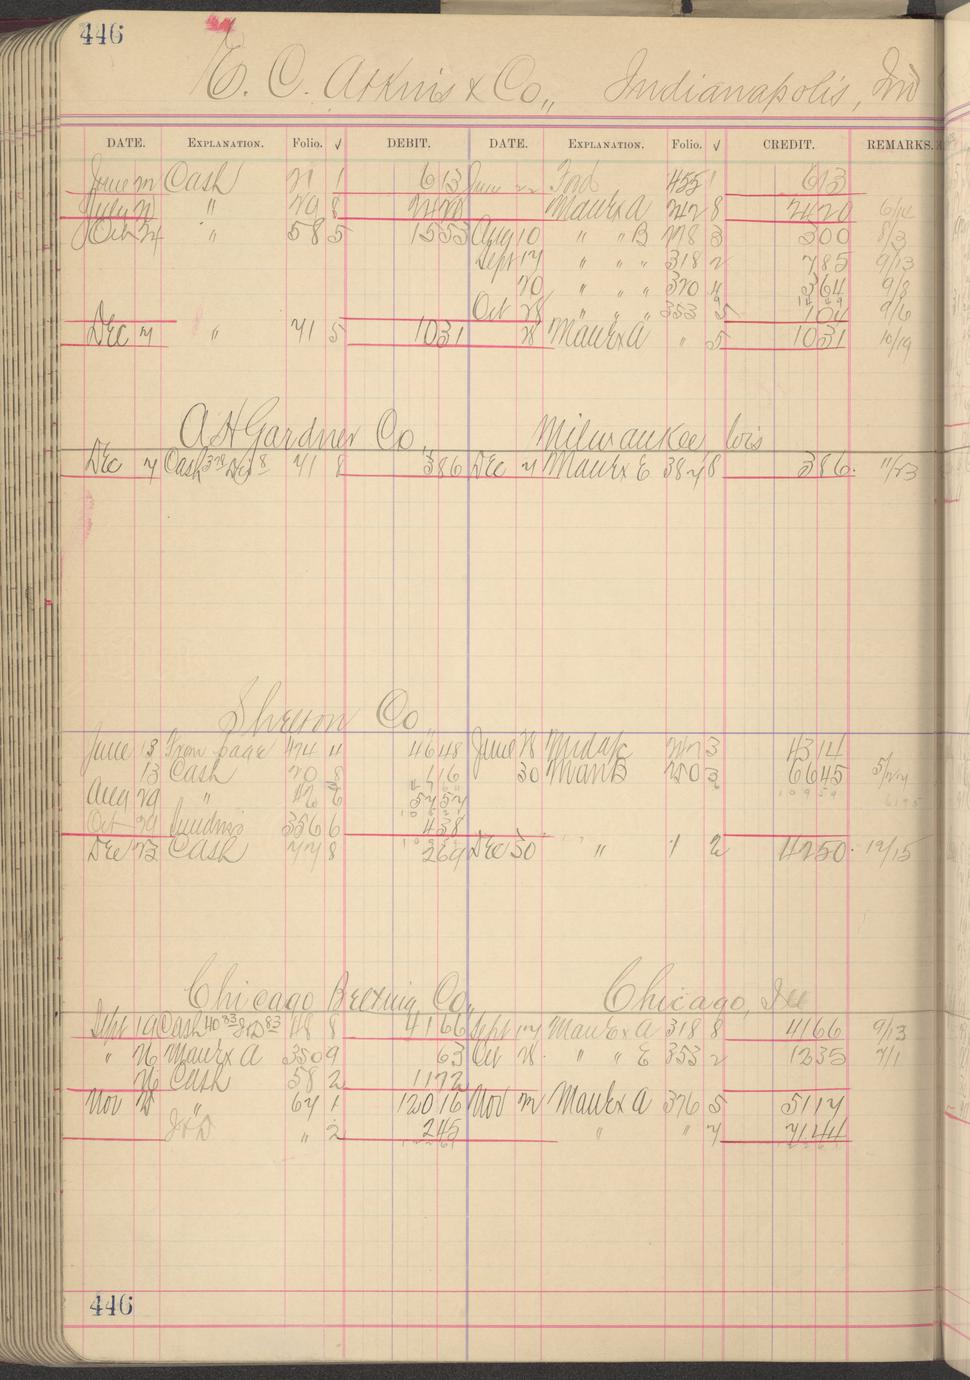 446
E. C. Atkins & Co., Indianapolis, Ind
DATE. EXPLANATION. Folio. √ DEBIT. DATE. EXPLANATION. Folio. √ CREDIT. REMARKS.
June 21 Cash 21 1 613 June 22 Ford 455 1 613
July 21 " 29 8 2420 ManExA 242 8 2420
Oct 24 " 58 5 1553 Aug 10 " " B 278 3 300 8/3
Sept 17 " " " 318 2 785 9/13
20 " " " 320 4 364 9/8
Oct 28 " " " 353 5 104 9/6
Dec 7 " 71 5 1031 28 ManExA " 5 1031 10/19
A H Gardner Co., Milwaukee, Wis
Dec 7 Cash 71 8 386 Dec 7 ManEx E 387 8 386 11/23
Shelton Co
June 13 From page 474 4 4648 June 28 3 4314
13 Cash 20 8 616 30 ManB 250 3 6645 5/27
Aug 29 " 6 5757
Oct 29 Sundries 356 6 438
Dec 23 Cash 77 8 269 Dec 30 " 1 2 4250 12/15
Chicago Belting Co., Chicago, Ill
Sept 19 Cash 40 83 I&D 83 48 8 4166 Sept 17 ManExA 318 8 4166 9/13
" 26 ManExA 350 9 63 Oct 28 " " E 353 2 1235 7/1
26 Cash 58 2 1172
Nov 21 " 67 1 12016 Nov 21 ManExA 376 5 5117
I&D " 2 245 " " 7 7144
446